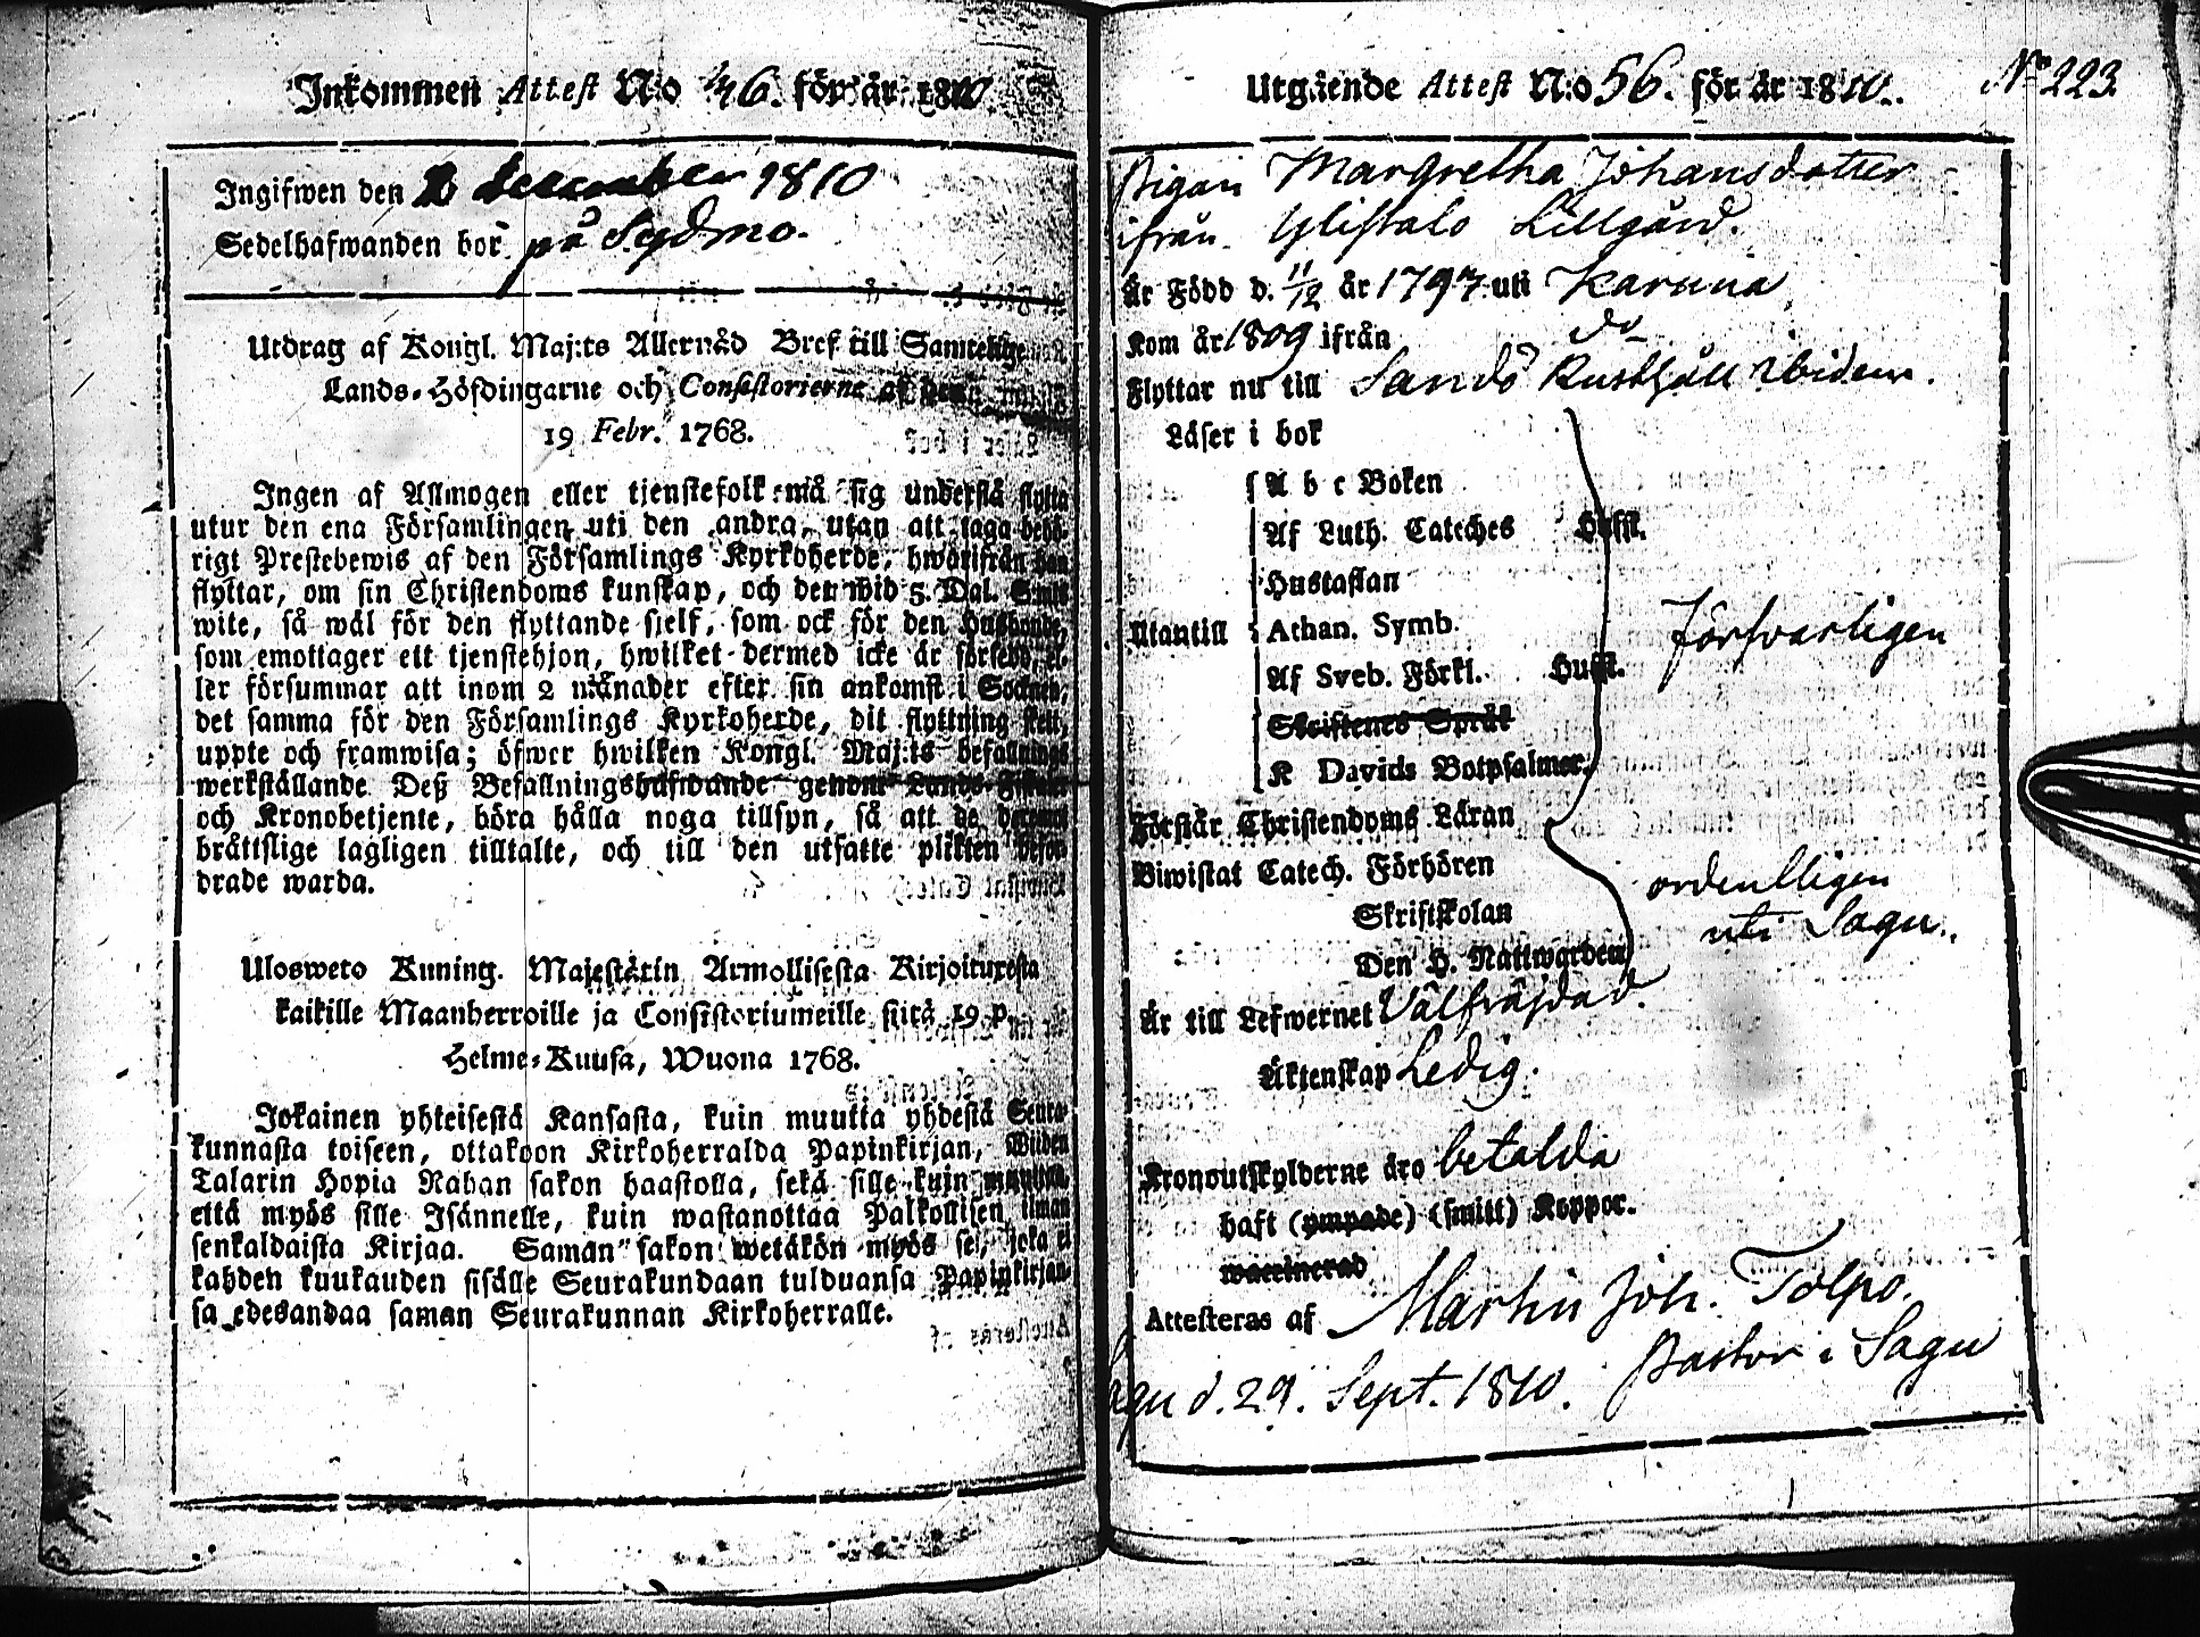 Inkommen Attest N:o 46. för år 1810.
Ingifwen den 2 december 1810
Sedelhafwanden bor på Sydmo.
Utdrag af Kongl. Maj:ts Allernåd Bref till Samtelige
Lands-Höfdingarne och Consistorierne af den
19 Febr. 1768.
Ingen af Allmogen eller tjenstefolk må sig understå flytta
utur den ena Församlingen uti den andra, utan att taga behö-
rigt Prestebewis af den Församlings Kyrkoherde, hwarifrån han
flyttar, om sin Christendoms kunskap, och det wid 5. Dal. S:mts
wite, så wäl för den flyttande sjelf, som ock för den Husbonde,
som emottager ett tjenstehjon, hwilket dermed icke är försedd, el-
ler försummar att inom 2 månader efter sin ankomst i Socknen,
det samma för den Församlings Kyrkoherde, dit flyttning skett,
uppte och framwisa; öfwer hwilken Kongl. Maj:ts befallnings
werkställande Deß Befallningshafwande genom Lands-Fiskaler
och Kronobetjente, böra hålla noga tillsyn, så att de deremot
bråttslige lagligen tilltalte, och till den utsatte plikten befor-
drade warda.
Ulosweto Kuning. Majestätin Armollisesta Kirjoituxesta
kaikille Maanherroille ja Consistoriumeille siitä 19 p.
Helme-Kuusa, Wuona 1768.
Jokainen yhteisestä Kansasta, kuin muutta yhdestä Seura-
kunnasta toiseen, ottakoon Kirkoherralda Papinkirjan, Wiiden
Talarin Hopia Rahan sakon haastolla, sekä sille kuin muuttaa,
että myös sille Isännelle, kuin wastanottaa Palkollisen ilman
senkaldaista Kirjaa. Saman sakon wetäkön myös se, joka ei
kahden kuukauden sisälle Seurakundaan tulduansa Papinkirjan-
sa edesandaa saman Seurakunnan Kirkoherralle.
Utgående Attest N:o 56. för år 1810.. No 223.
Pigan Margretha Johansdotter
ifrån Lillgård.
Är Född d. 11/12 år 1797 uti Karuna
Kom år 1809 ifrån do
Flyttar nu till Sandö Rusthåll ibidem.
Läser i bok
A b c Boken
Af Luth. Cateches Hufst.
Hustaflan
Utantill Athan. Symb. Försvarligen
Af Sveb. Förkl. Hufst.
Skriftenes Språk
K Davids Botpsalmer.
Förstår Christendoms Läran
Biwistat Catech. Förhören ordentligen
Skriftskolan uti Sagu..
Den H. Nattwarden
Är till Lefwernet Välfräjdad.
Äktenskap Ledig.
Kronoutskylderne äro betalda
haft (ympade) (smitt) Koppor.
waccinerad
Attesteras af Martin Joh. Tolpo.
Pastor i Sagu
Sagu d. 29. Sept. 1810.